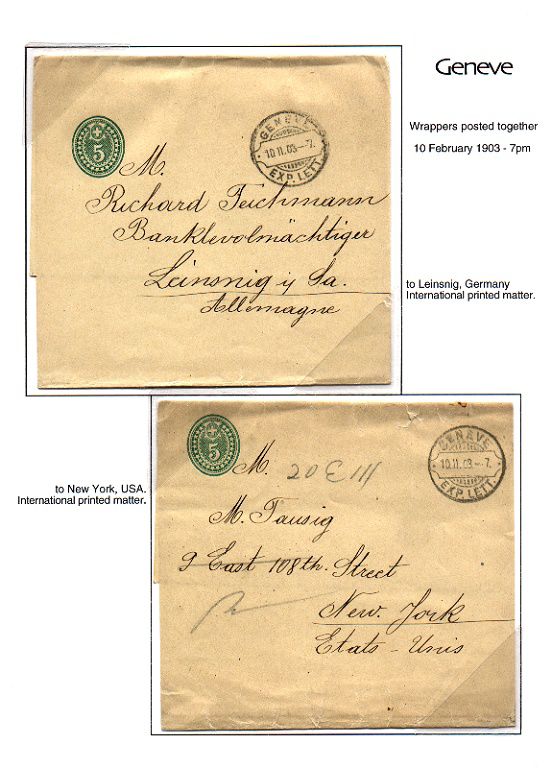 Geneve
Wrappers posted together
10 February 1903 - 7pm
5
GENÈVE
10.II.03-7.
EXP. LETT.
M.
Richard Teichmann
Banklevolmächtiger
Leinsnig i/ Sa.
Allemagne
to Leinsnig, Germany
International printed matter.
5
GENÈVE
10.II.03-7.
EXP. LETT.
M.
20 E 111
M. Tausig
9 East 108th. Street
New. York
Etats-Unis
to New York, USA.
International printed matter.